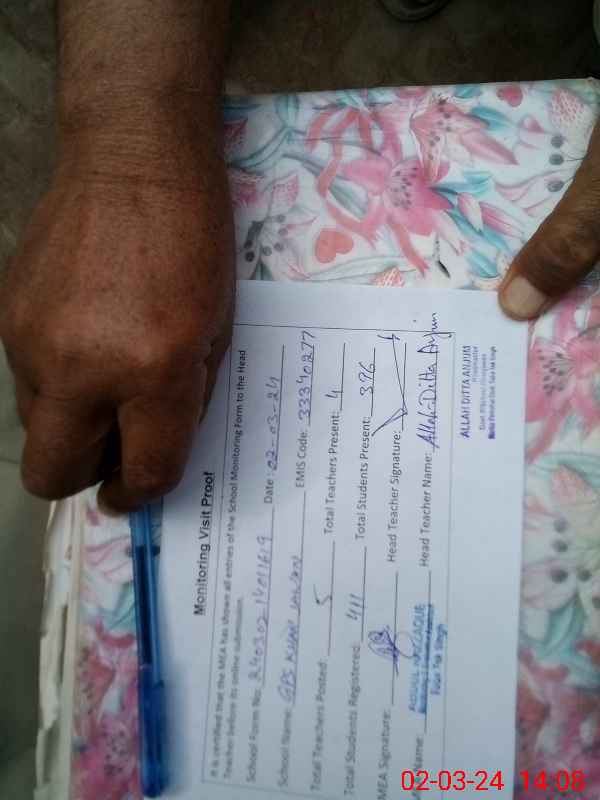 Monitoring Visit Proof
It is certified that the MEA has shown all entries of the School Monitoring Form to the Head
Teacher before its online submission.
School Form No: 24030214011619 Date: 02-03-24
School Name: GPS KHAN EMIS Code: 33340277
Total Teachers Posted: 5 Total Teachers Present: 4
Total Students Registered: 411 Total Students Present: 396
MEA Signature: Head Teacher Signature:
Name: Head Teacher Name: Allah Ditta Anjum
ALLAH DITTA ANJUM
02-03-24 14:08